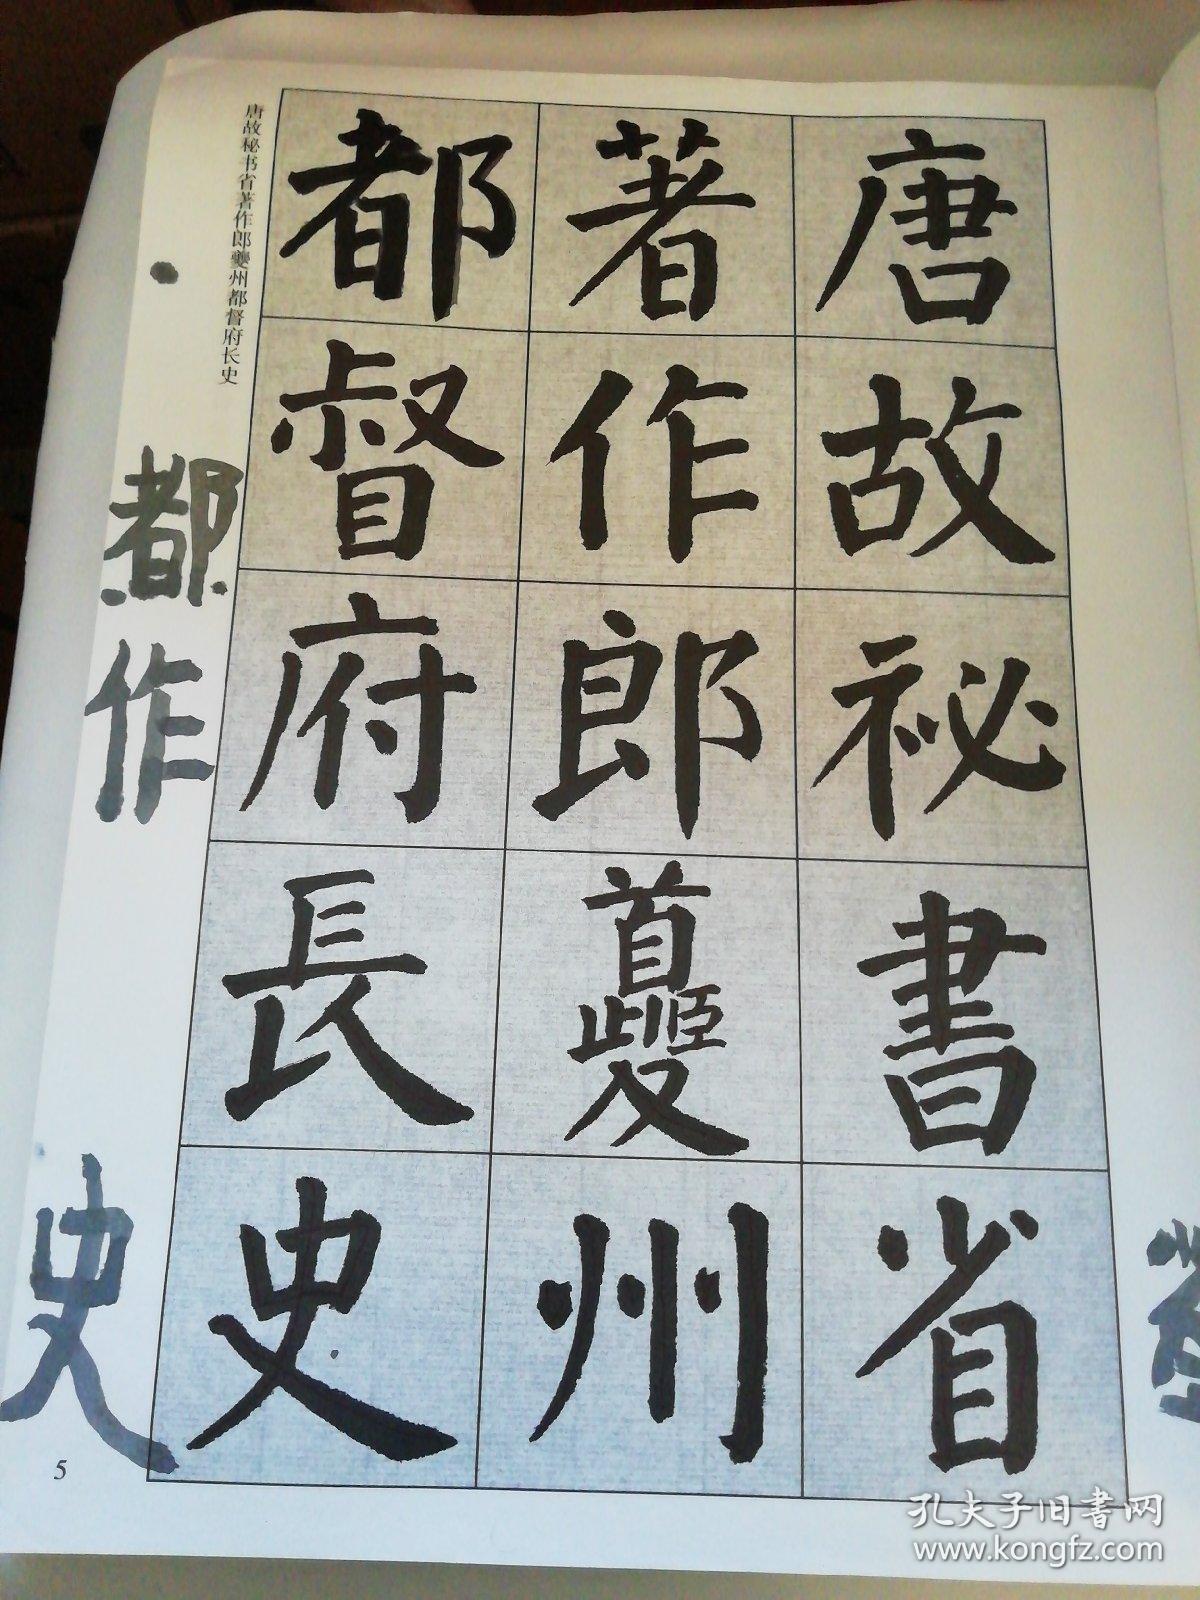 唐故祕書省
著作郎夔州
都督府長史
唐故秘书省著作郎夔州都督府长史
都
作
史
5
孔夫子旧书网
www.kongfz.com